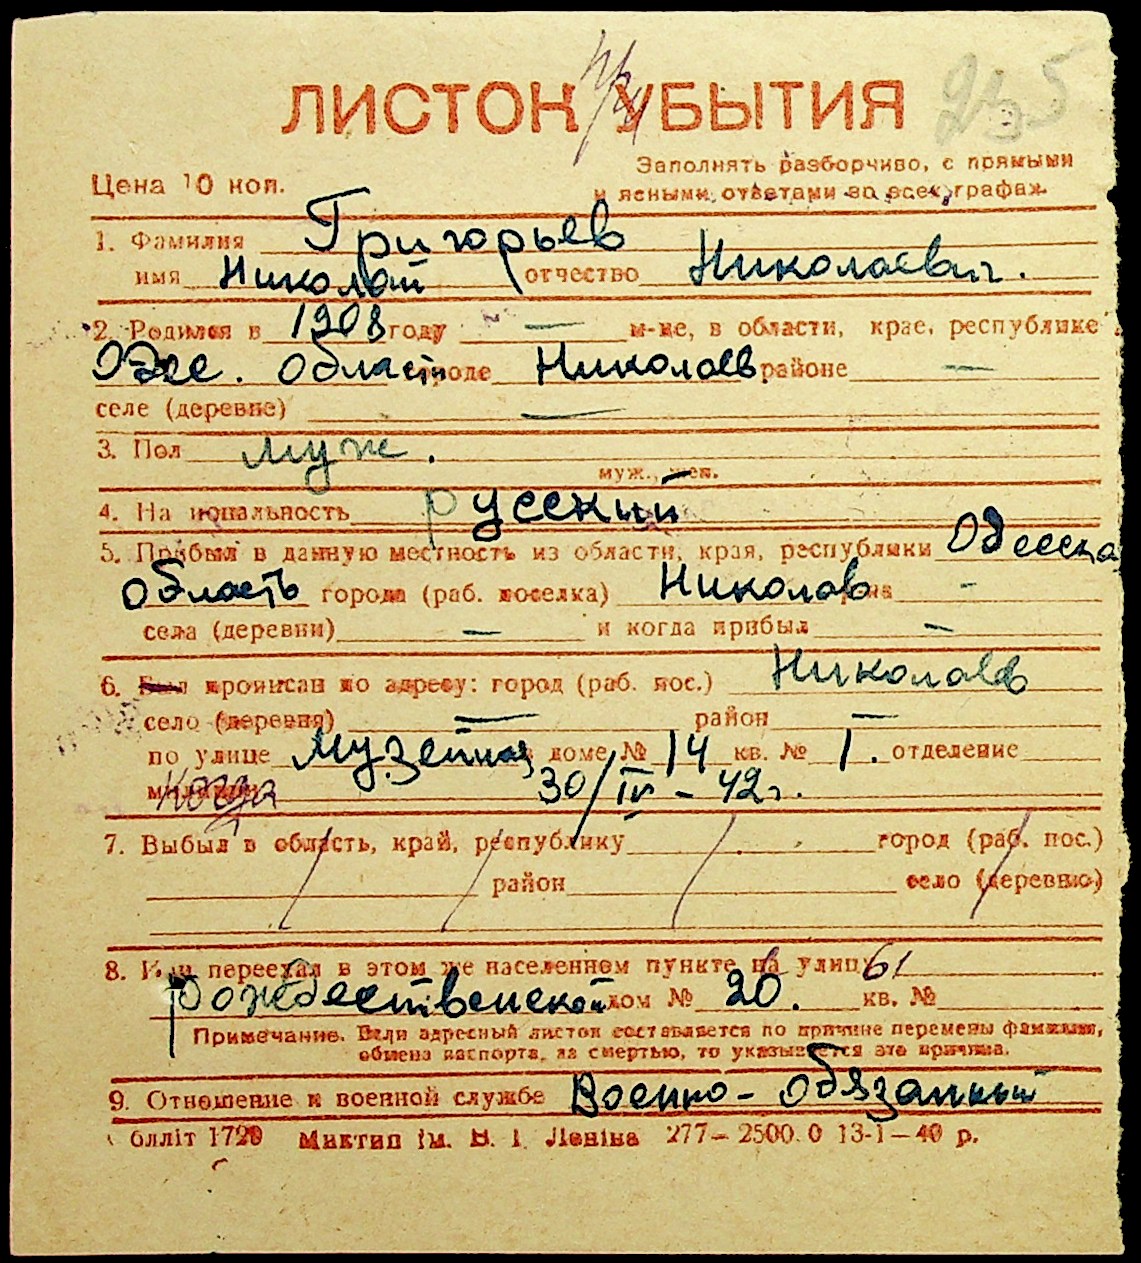 ЛИСТОК УБЫТИЯ
Цена 10 коп.
Заполнять разборчиво, с прямыми
и ясными ответами во всех графах.
1. Фамилия Григорьев
имя Николай отчество Николаевич.
2. Родился в 1908 году — м-це, в области, крае, республике
Одес. област городе Николаев районе —
селе (деревне) —
3. Пол муж.
муж., жен.
4. Национальность русский
5. Прибыл в данную местность из области, края, республики Одесска
область города (раб. поселка) Николаев —
села (деревни) — и когда прибыл —
6. Был прописан по адресу: город (раб. пос.) Николаев
село (деревня) — район —
по улице Музейная в доме № 14 кв. № 1. отделение
милиции Когда 30/IV – 42 г.
7. Выбыл в область, край, республику город (раб. пос.)
район село (деревню)
8. Или переехал в этом же населенном пункте на улицу 61
Рождественской дом № 20. кв. №
Примечание. Если адресный листок составляется по причине перемены фамилии,
обмена паспорта, за смертью, то указывается эта причина.
9. Отношение к военной службе Военно-обязанный
блліт 1720 Миктип ім. В. І. Леніна 277—2500.0 13-1—40 р.